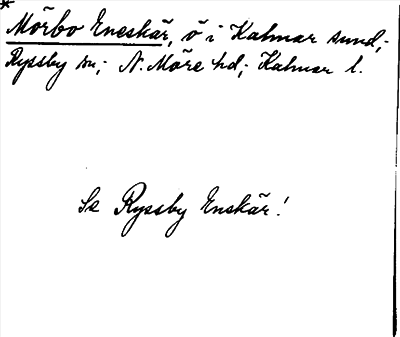 * Mörbo Eneskär, ö i Kalmar sund;
Ryssby sn; N. Möre hd; Kalmar l.
Se Ryssby Enskär!